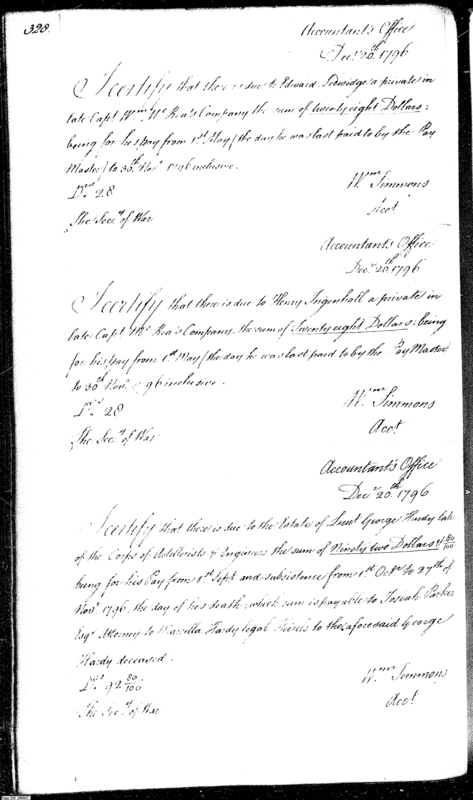 328.
Accountant's Office
Decr 20th 1796
I certify that there is due to Edward Ledwidge a private in
late Capt. Wm McRea's Company the sum of twenty eight Dollars;
being for his pay from 1st May (the day he was last paid to by the Pay
Master) to 30th Novr 1796 inclusive.
Drs 28
Wm Simmons
Acct
The Secy of War
Accountant's Office
Decr 20th 1796
I certify that there is due to Henry Ingenhall a private in
late Capt. McRea's Company, the sum of Twenty eight Dollars; being
for his pay from 1st May (the day he was last paid to by the Pay Master
to 30th Novr 96 inclusive.
Drs 28
Wm Simmons
Acct
The Secy of War
Accountant's Office
Decr 20th 1796
I certify that there is due to the Estate of Lieut George Hardy late
of the Corps of Artillerists & Engineers the sum of Ninety two Dollars & 80/100
being for his Pay from 1st Sept and subsistence from 1st Octr to 27th of
Novr 1796, the day of his death; which sum is payable to Josiah Parker
Esqr Attorney to Hardy legal to the aforesaid George
Hardy deceased.
Drs 92 80/100
Wm Simmons
Acct
The Secy of War